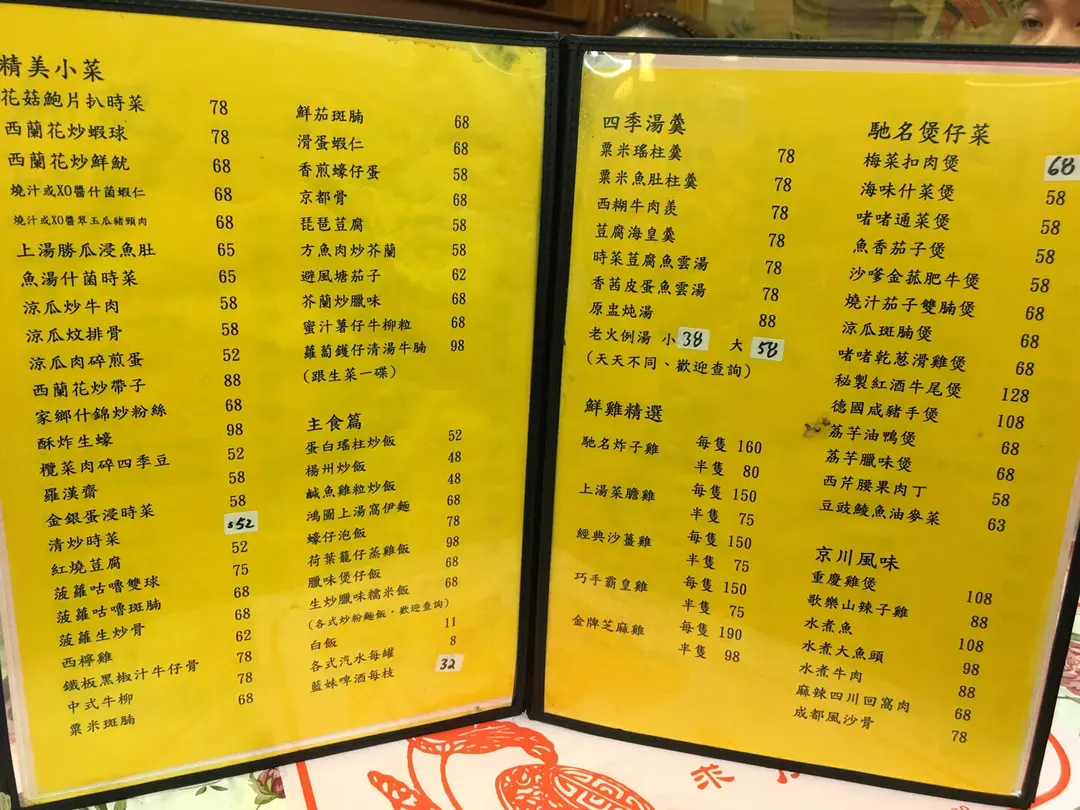 精美小菜
花菇鮑片扒時菜 78
西蘭花炒蝦球 78
西蘭花炒鮮魷 68
燒汁或XO醬什菌蝦仁 68
燒汁或XO醬翠玉瓜豬頸肉 68
上湯勝瓜浸魚肚 65
魚湯什菌時菜 65
涼瓜炒牛肉 58
涼瓜炆排骨 58
涼瓜肉碎煎蛋 52
西蘭花炒帶子 88
家鄉什錦炒粉絲 68
酥炸生蠔 98
欖菜肉碎四季豆 52
羅漢齋 58
金銀蛋浸時菜 58
清炒時菜 $52
紅燒荳腐 52
菠蘿咕嚕雙球 75
菠蘿咕嚕斑腩 68
菠蘿生炒骨 68
西檸雞 62
鐵板黑椒汁牛仔骨 78
中式牛柳 78
粟米斑腩 68
鮮茄斑腩 68
滑蛋蝦仁 68
香煎蠔仔蛋 58
京都骨 68
琵琶荳腐 58
方魚肉炒芥蘭 58
避風塘茄子 62
芥蘭炒臘味 68
蜜汁薯仔牛柳粒 68
蘿蔔鑊仔清湯牛腩 98
(跟生菜一碟)
主食篇
蛋白瑤柱炒飯 52
楊州炒飯 48
鹹魚雞粒炒飯 48
鴻圖上湯窩伊麵 68
蠔仔泡飯 78
荷葉籠仔蒸雞飯 98
臘味煲仔飯 68
生炒臘味糯米飯 68
(各式炒粉麵飯，歡迎查詢)
白飯 11
各式汽水每罐 8
藍妹啤酒每枝 32
四季湯羹
粟米瑤柱羹 78
粟米魚肚柱羹 78
西糊牛肉羨 78
荳腐海皇羹 78
時菜荳腐魚雲湯 78
香茜皮蛋魚雲湯 78
原盅炖湯 88
老火例湯 小 38 大 58
(天天不同、歡迎查詢)
鮮雞精選
馳名炸子雞 每隻 160
半隻 80
上湯菜膽雞 每隻 150
半隻 75
經典沙薑雞 每隻 150
半隻 75
巧手霸皇雞 每隻 150
半隻 75
金牌芝麻雞 每隻 190
半隻 98
馳名煲仔菜
梅菜扣肉煲 68
海味什菜煲 58
啫啫通菜煲 58
魚香茄子煲 58
沙嗲金菰肥牛煲 58
燒汁茄子雙腩煲 68
涼瓜斑腩煲 68
啫啫乾葱滑雞煲 68
秘製紅酒牛尾煲 128
德國咸豬手煲 108
荔芋油鴨煲 68
荔芋臘味煲 68
西芹腰果肉丁 58
豆豉鯪魚油麥菜 63
京川風味
重慶雞煲 108
歌樂山辣子雞 88
水煮魚 108
水煮大魚頭 98
水煮牛肉 88
麻辣四川回窩肉 68
成都風沙骨 78